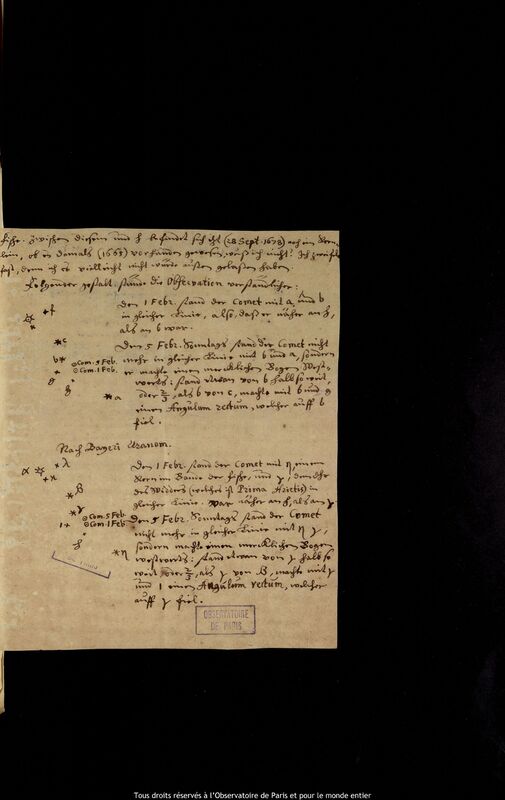 fisse. Zwischen diesem und h befindet sich itzt (28 Sept. 1678) noch ein Stern-
lein, ob es damals (1665) vorhanden gewesen, weiß ich nicht: Ich zweifle
fast, denn ich es vielleicht nicht würde außen gelassen haben.
Folgender gestalt stünde die Observation verständlicher:
Den 1 Febr. stand der Comet mit a und b
in gleicher Linie, also, daß er näher an h,
als an b war.
Den 5 Febr. Sonntags stand der Comet nicht
mehr in gleicher Linie mit b und a, sondern
er machte einen mercklichen Bogen West-
werts: stand etwan von b halb so weit,
oder 2/3, als b von c, machte mit b und g
einen Angulum rectum, welcher auff b
fiel.
f
c
b
Com. 5 Feb.
Com. 1 Feb.
g
h
a
Nach Bayeri Uranom.
Den 1 Febr. stand der Comet mit η einem
Stern im Bande der Fische, und γ, dem Ohr
des Widders (welches ist Prima Arietis) in
gleicher Linie. War näher an h, als an γ.
Den 5 Febr. Sonntags stand der Comet
nicht mehr in gleicher Linie mit η γ,
sondern machte einen mercklichen Bogen
westwerts: stand etwan von γ halb so
weit oder 2/3, als γ von β, machte mit γ
und ι einen Angulum rectum, welcher
auff γ fiel.
α
λ
β
γ
Com. 5 Feb.
ι
Com. 1 Feb.
h
η
OBSERVATOIRE
DE PARIS
Tous droits réservés à l'Observatoire de Paris et pour le monde entier